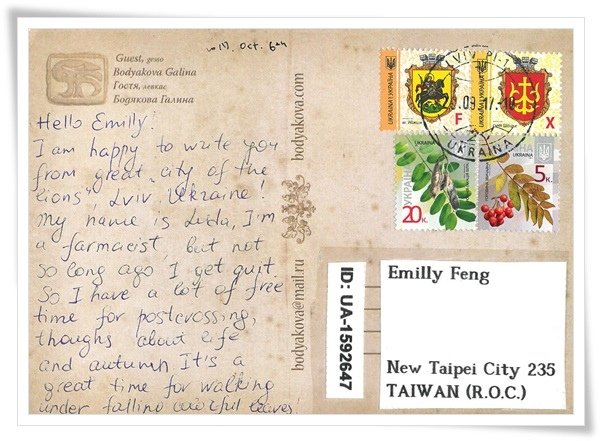 Oct. 6th
Guest, gesso
Bodyakova Galina
Гостя, левкас
Бодякова Галина
Hello Emilly!
I am happy to write you
from great "city of the
lions", Lviv. Ukraine!
My name is Luda, I'm
a farmacist, but not
so long ago I get quit.
So I have a lot of free
time for postcrossing,
thoughs about life
and autumn. It's a
great time for walking
under falling colorful leaves!
bodyakova.com
bodyakova@mail.ru
УКРАЇНА UKRAINE
F
УКРАЇНА UKRAINE
X
LVIV PI-1
09 17-18
UKRAINA
УКРАЇНА
20к.
УКРАЇНА
5к.
ID: UA-1592647
Emilly Feng
New Taipei City 235
TAIWAN (R.O.C.)